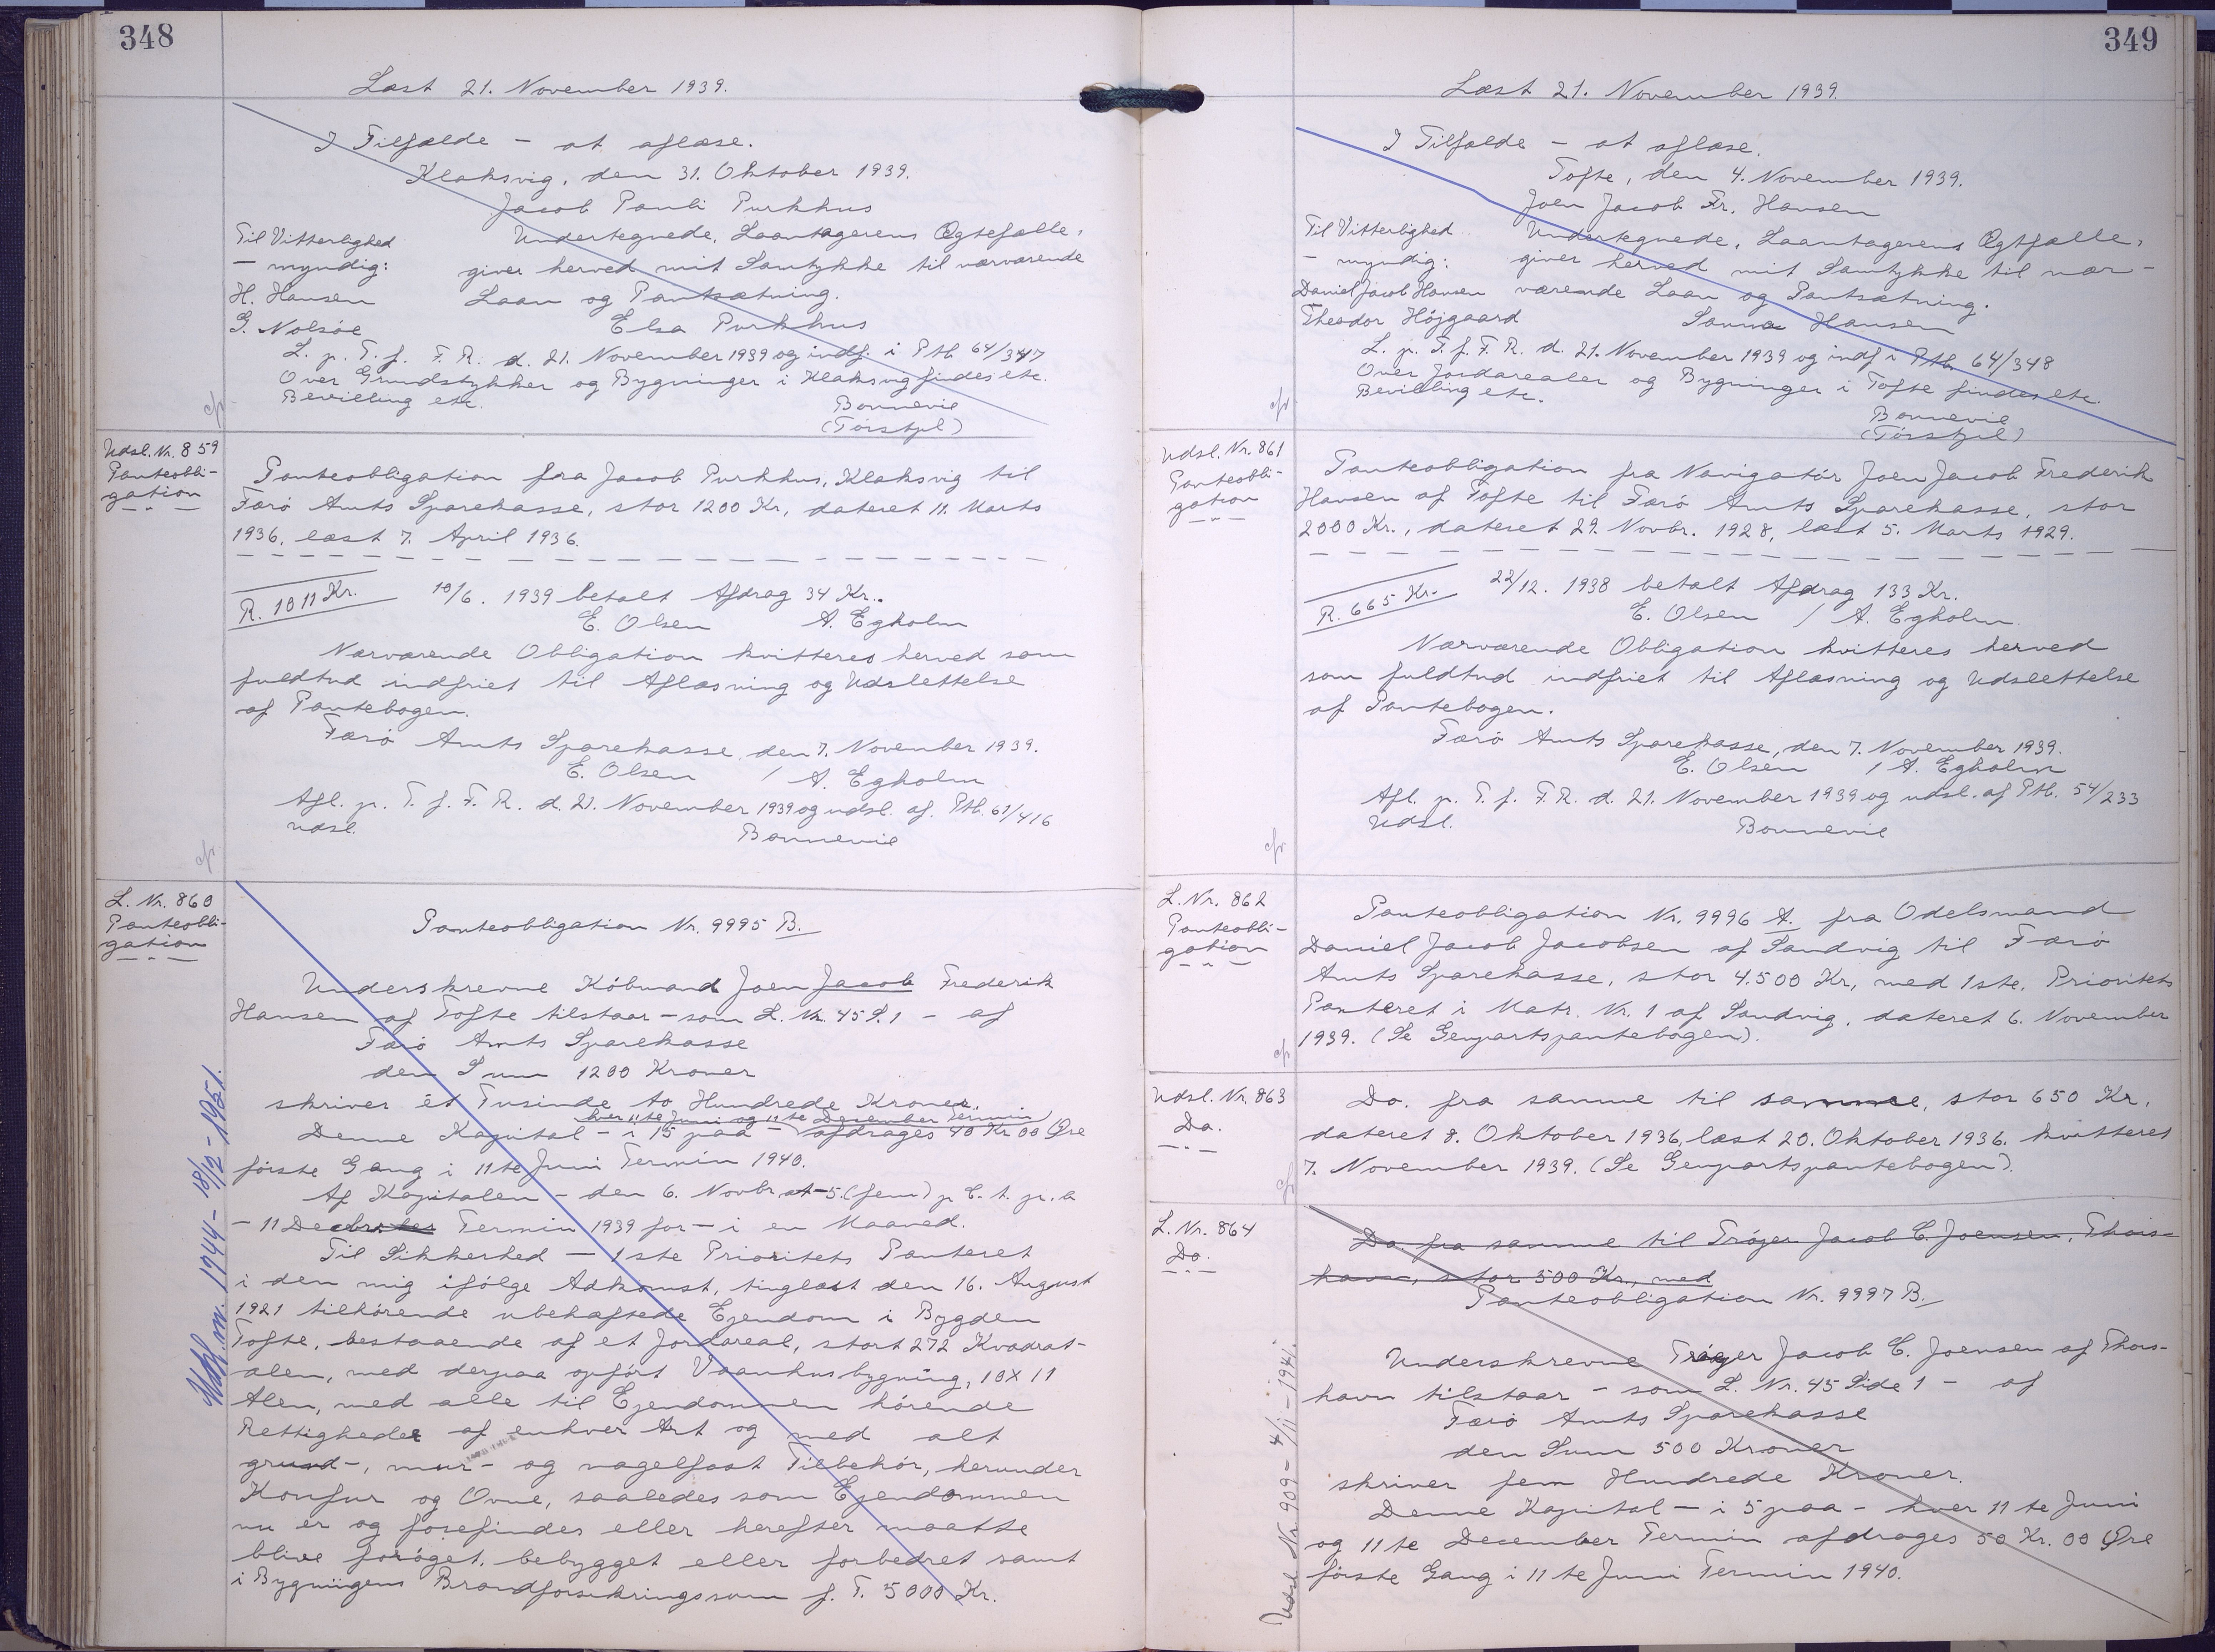 348
Læst 21. November 1939.
I Tilfælde - at aflæse.
Klaksvig, den 31. Oktober 1939.
Jacob Pauli Purkhus
Til Vitterlighed
- myndig:
H. Hansen
G. Nolsöe
Undertegnede, Laantagerens Ægtefælle,
giver herved mit Samtykke til nærværende
Laan og Pantsætning.
Elsa Purkhus
L. p. T. f. F. R. d. 21. November 1939 og indf. i Ptb 64/347
Over Grundstykker og Bygninger i Klaksvig findes etc.
Bevilling etc.
Bonnevie
(Törstzil)
cfr.
Udsl. Nr. 859
Panteobli-
gation
Panteobligation fra Jacob Purkhus, Klaksvig til
Færö Amts Sparekasse, stor 1200 Kr., dateret 11. Marts
1936, læst 7. April 1936.
R. 1011 Kr.
10/6. 1939 betalt Afdrag 34 Kr..
E. Olsen A. Egholm
Nærværende Obligation kvitteres herved som
fuldtud indfriet til Aflæsning og Udslettelse
af Pantebogen.
Færö Amts Sparekasse, den 7. November 1939.
E. Olsen / A. Egholm
Afl. p. T. f. F. R. d. 21. November 1939 og udsl. af. Ptb. 61/416
udsl.
Bonnevie
cfr.
L. Nr. 860
Panteobli-
gation
Panteobligation Nr. 9995 B.
Underskrevne Köbmand Joen Jacob Frederik
Hansen af Tofte tilstaar - som L. Nr. 45 S. 1 - af
Færö Amts Sparekasse
den Sum 1200 Kroner
skriver ét Tusinde to Hundrede Kroner.
hver 11te Juni og 11te December Termin
Denne Kapital - i 15 paa - afdrages 40 Kr 00 Øre
förste Gang i 11te Juni Termin 1940.
Af Kapitalen - den 6. Novbr at 5 (fem) p C. t. p. a
- 11 December Termin 1939 for - i en Maaned.
Til Sikkerhed - 1ste Prioritets Panteret
i den mig ifölge Adkomst, tinglæst den 16. August
1921 tilhörende ubehæftede Ejendom i Bygden
Tofte, bestaaende af et Jordareal, stort 272 Kvadrat-
alen, med derpaa opfört Vaanhusbygning, 10 x 11
Alen, med alle til Ejendommen hörende
Rettigheder af enhver Art og med alt
grund-, mur- og nagelfast Tilbehör, herunder
Komfur og Ovne, saaledes som Ejendommen
nu er og forefindes eller herefter maatte
blive foröget, bebygget eller forbedret samt
i Bygningens Brandforsikringssum f. T. 5000 Kr.
Udsl. m. 1944 - 18/12 - 1951.
349
Læst 21. November 1939.
I Tilfælde - at aflæse.
Tofte, den 4. November 1939.
Joen Jacob Fr. Hansen
Til Vitterlighed
- myndig:
Daniel Jacob Hansen
Theodor Höjgaard
Undertegnede, Laantagerens Ægtfælle,
giver herved mit Samtykke til nær-
værende Laan og Pantsætning.
Sanna Hansen
L. p. T. f. F. R. d. 21. November 1939 og indf i Ptb 64/348
Over Jordarealer og Bygninger i Tofte findes etc.
Bevilling etc.
Bonnevie
(Törstzil)
cfr.
Udsl. Nr. 861
Panteobli-
gation
Panteobligation fra Navigatör Joen Jacob Frederik
Hansen af Tofte til Færö Amts Sparekasse, stor
2000 Kr., dateret 29. Novbr. 1928, læst 5. Marts 1929.
R. 665 Kr.
22/12. 1938 betalt Afdrag 133 Kr.
E. Olsen / A. Egholm.
Nærværende Obligation kvitteres herved
som fuldtud indfriet til Aflæsning og Udslettelse
af Pantebogen.
Færö Amts Sparekasse, den 7. November 1939.
E. Olsen / A. Egholm
Afl. p. T. f. F. R. d. 21. November 1939 og udsl. af Ptb. 54/233
Udsl.
Bonnevie
cfr.
L. Nr. 862
Panteobli-
gation
Panteobligation Nr. 9996 A. fra Odelsmand
Daniel Jacob Jacobsen af Sandvig til Færö
Amts Sparekasse, stor 4.500 Kr, med 1ste. Prioritets
Panteret i Matr. Nr. 1 af Sandvig, dateret 6. November
1939. (Se Genpartspantebogen).
cfr.
Udsl. Nr. 863
Do.
Do. fra samme til samme, stor 650 Kr.
dateret 8. Oktober 1936, læst 20. Oktober 1936. kvitteret
7. November 1939. (Se Genpartspantebogen).
cfr.
L. Nr. 864
Do.
Do. fra samme til Tröjer Jacob C. Joensen, Thors-
havn, stor 500 Kr., med
Panteobligation Nr. 9997 B.
Underskrevne Tröjer Jacob C. Joensen af Thors-
havn tilstaar - som L. Nr. 45 Side 1 - af
Færö Amts Sparekasse
den Sum 500 Kroner
skriver fem Hundrede Kroner.
Denne Kapital - i 5 paa - hver 11te Juni
og 11te December Termin afdrages 50 Kr. 00 Øre
förste Gang i 11te Juni Termin 1940.
Udsl Nr 909 - 4/11 - 1941.